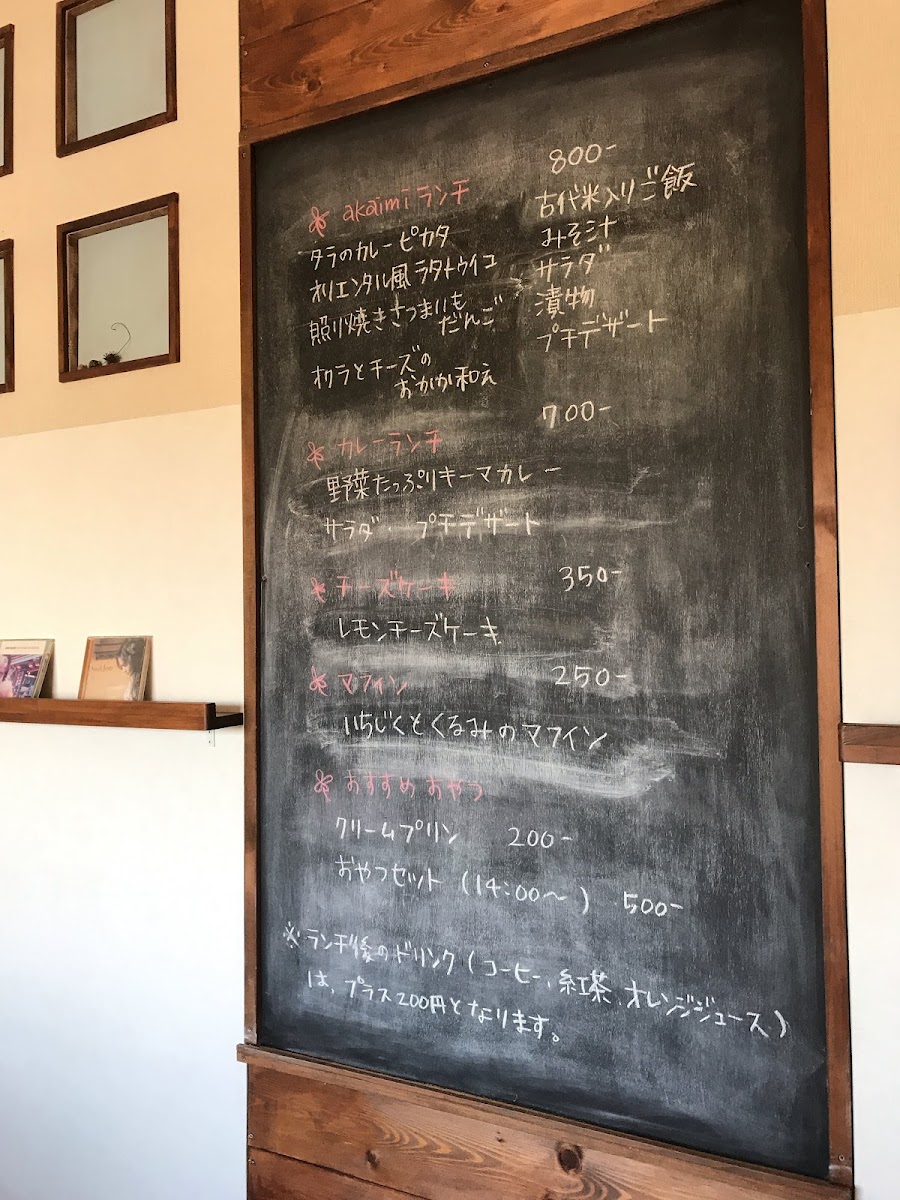 akaimi ランチ 800-
タラのカレーピカタ
オリエンタル風ラタトゥイユ
照り焼きさつまいも
だんご
オクラとチーズの
おかか和え
古代米入りご飯
みそ汁
サラダ
漬物
プチデザート
カレーランチ 700-
野菜たっぷりキーマカレー
サラダ・プチデザート
チーズケーキ 350-
レモンチーズケーキ
マフィン 250-
いちじくとくるみのマフィン
おすすめおやつ
クリームプリン 200-
おやつセット (14:00〜) 500-
※ランチ後のドリンク(コーヒー、紅茶、オレンジジュース)
は、プラス200円となります。